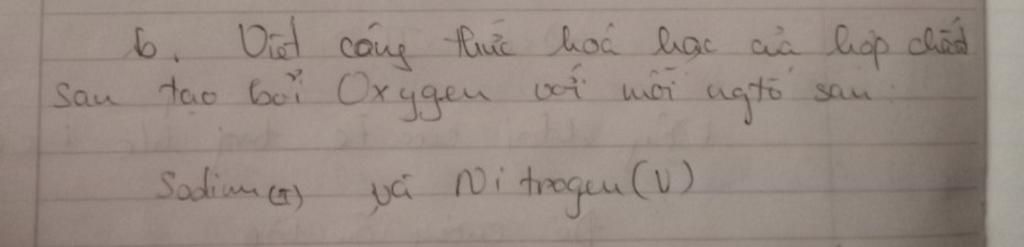 b. Viết công thức hoá học của hợp chất
sau tạo bởi Oxygen với mỗi ngtố sau:
Sodium(I) và Nitrogen(V)